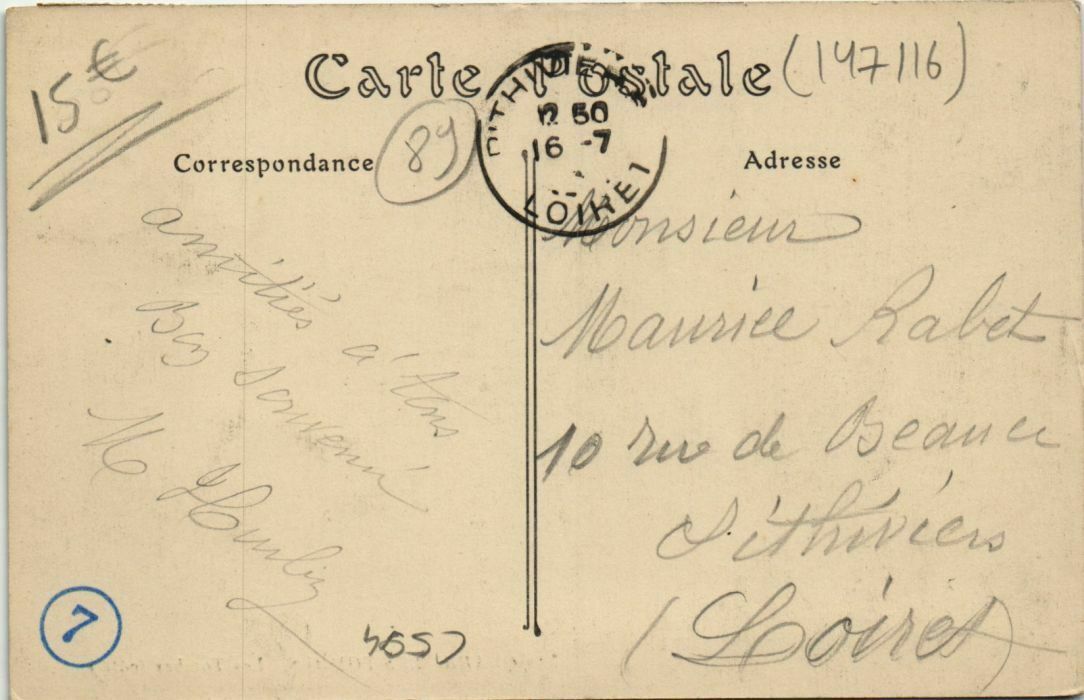 15€
Carte Postale
(147116)
PITHIVIERS
12 50
16 -7
LOIRET
Correspondance
89
Adresse
amitiés à tous
Bon souvenir
M
Monsieur
Maurice Rabet
10 rue de Beauce
Pithiviers
(Loiret)
7